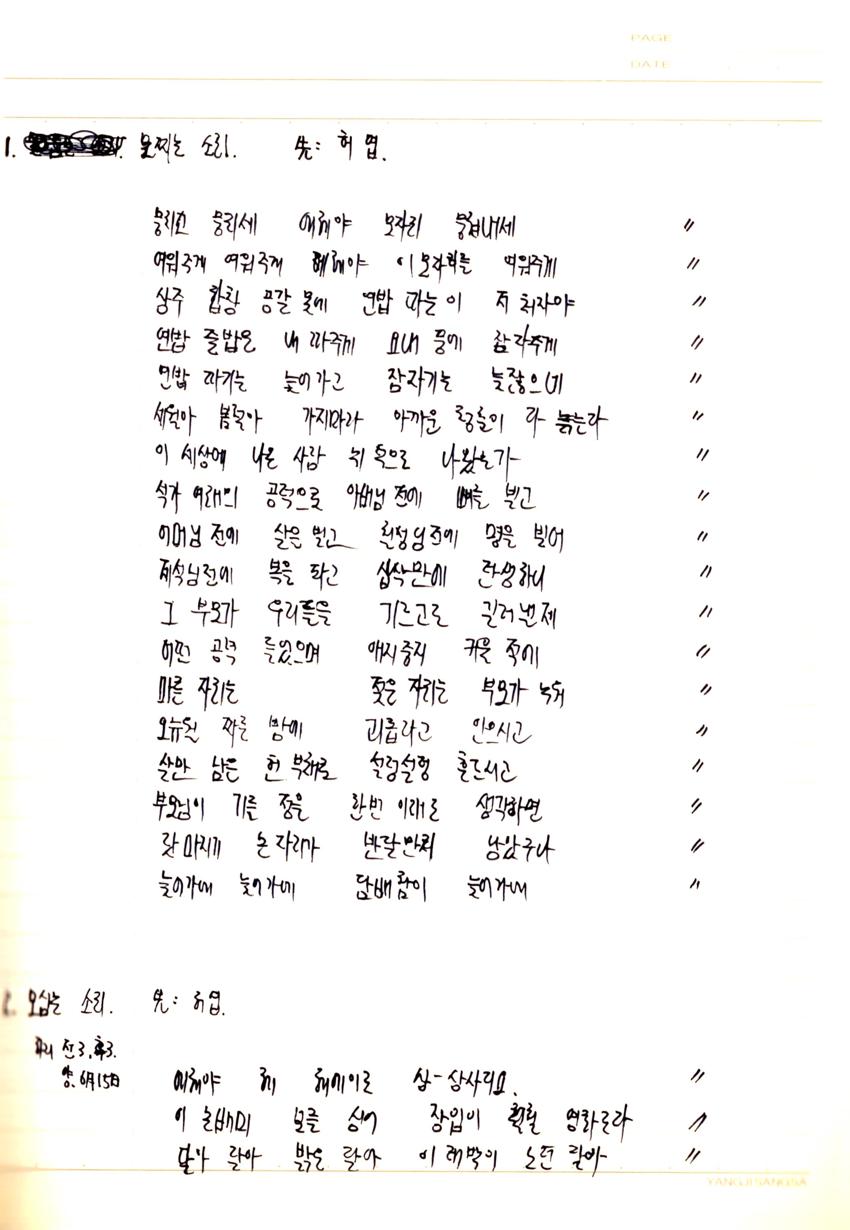 PAGE
DATE
1. 모찌는 소리. 先: 허 엽.
뭉치고 뭉치세 에헤야 모자리 뭉쳐내세 〃
여워주게 여워주게 에헤야 이 모자리를 여워주게 〃
상주 함창 공갈 못에 연밥 따는 이 저 처자야 〃
연밥 줄밥은 내 따주께 요내 품에 잠 자주게 〃
연밥 따기는 늦어가고 잠자기는 늦잖으네 〃
세월아 봄철아 가지마라 아까운 청춘이 다 늙는다 〃
이 세상에 나온 사람 뉘 덕으로 나왔는가 〃
석가 여래의 공덕으로 아버님 전에 뼈를 빌고 〃
어머님 전에 살을 빌고 칠성님전에 명을 빌어 〃
제석님전에 복을 타고 십삭만에 탄생하니 〃
그 부모가 우리들을 기르고로 길러낸제 〃
어떤 공덕 들었으며 애지중지 키울 적에 〃
마른 자리는 젖은 자리는 부모가 눅워 〃
오뉴월 짜른 밤에 괴롭다고 안으시고 〃
살만 남은 헌 부채로 설렁설렁 흔드시고 〃
부모님이 기른 정을 한번 이래로 생각하면 〃
닷마지기 논자리가 반달만치 남았구나 〃
늦어가네 늦어가네 담배참이 늦어가네 〃
2. 모심는 소리. 先: 허엽.
전3. 후3.
6月 15日
에헤야 헤 헤에이로 상-상사디요. 〃
이 논배미 모를 심어 장잎이 훨훨 영화로다 〃
달아 달아 밝은 달아 이태백이 노던 달아 〃
YANGJI SANGSA